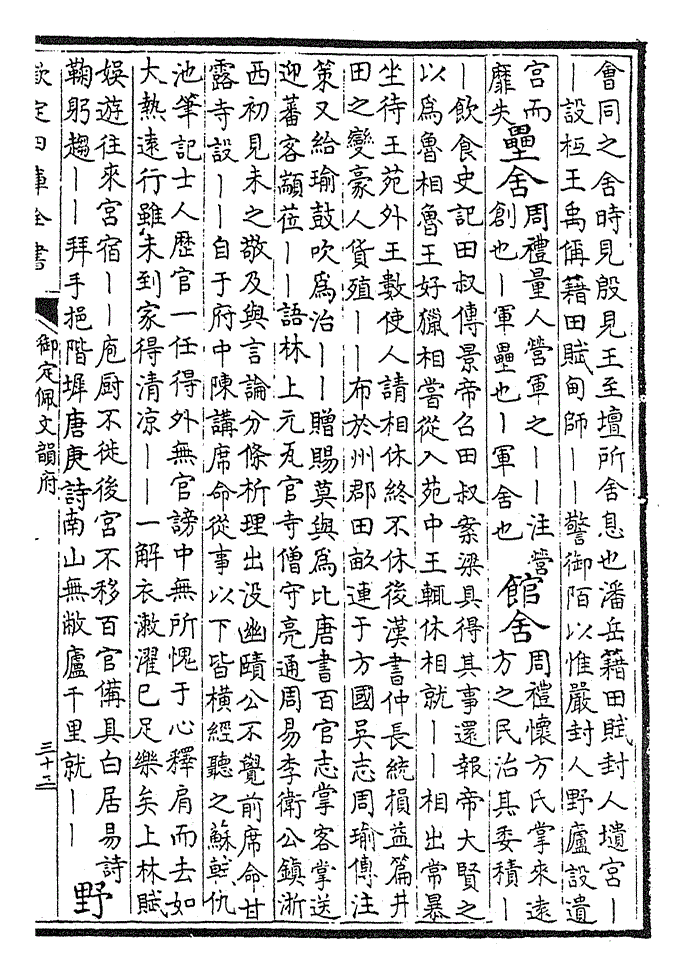 會同之舍時見殷見王至壇所舍息也潘岳藉田賦封人壝宮｜
｜設枑王禹偁藉田賦甸師｜｜警御陌以惟嚴封人野廬設遺
宮而
靡失
壘舍
周禮量人營軍之｜｜注營
創也｜軍壘也｜軍舍也
館舍
周禮懷方氏掌來遠
方之民治其委積｜
｜飲食史記田叔傳景帝召田叔案梁具得其事還報帝大賢之
以爲魯相魯王好獵相嘗從入苑中王輒休相就｜｜相出常暴
坐待王苑外王數使人請相休終不休後漢書仲長統損益篇井
田之變豪人貨殖｜｜布於州郡田畝連于方國吳志周瑜傳注
策又給瑜鼓吹爲治｜｜贈賜莫與爲比唐書百官志掌客掌送
迎蕃客顓莅｜｜語林上元瓦官寺僧守亮通周易李衛公鎮浙
西初見未之敬及與言論分條析理出没幽賾公不覺前席命甘
露寺設｜｜自于府中陳講席命從事以下皆橫經聽之蘇軾仇
池筆記士人歴官一任得外無官謗中無所愧于心釋肩而去如
大熱遠行雖未到家得清凉｜｜一解衣漱濯已足樂矣上林賦
娛遊往來宮宿｜｜庖厨不徙後宮不移百官備具白居易詩
鞠躬趨｜｜拜手挹階墀唐庚詩南山無敝廬千里就｜｜
野
欽定四庫全書
御定佩文韻府
三十二